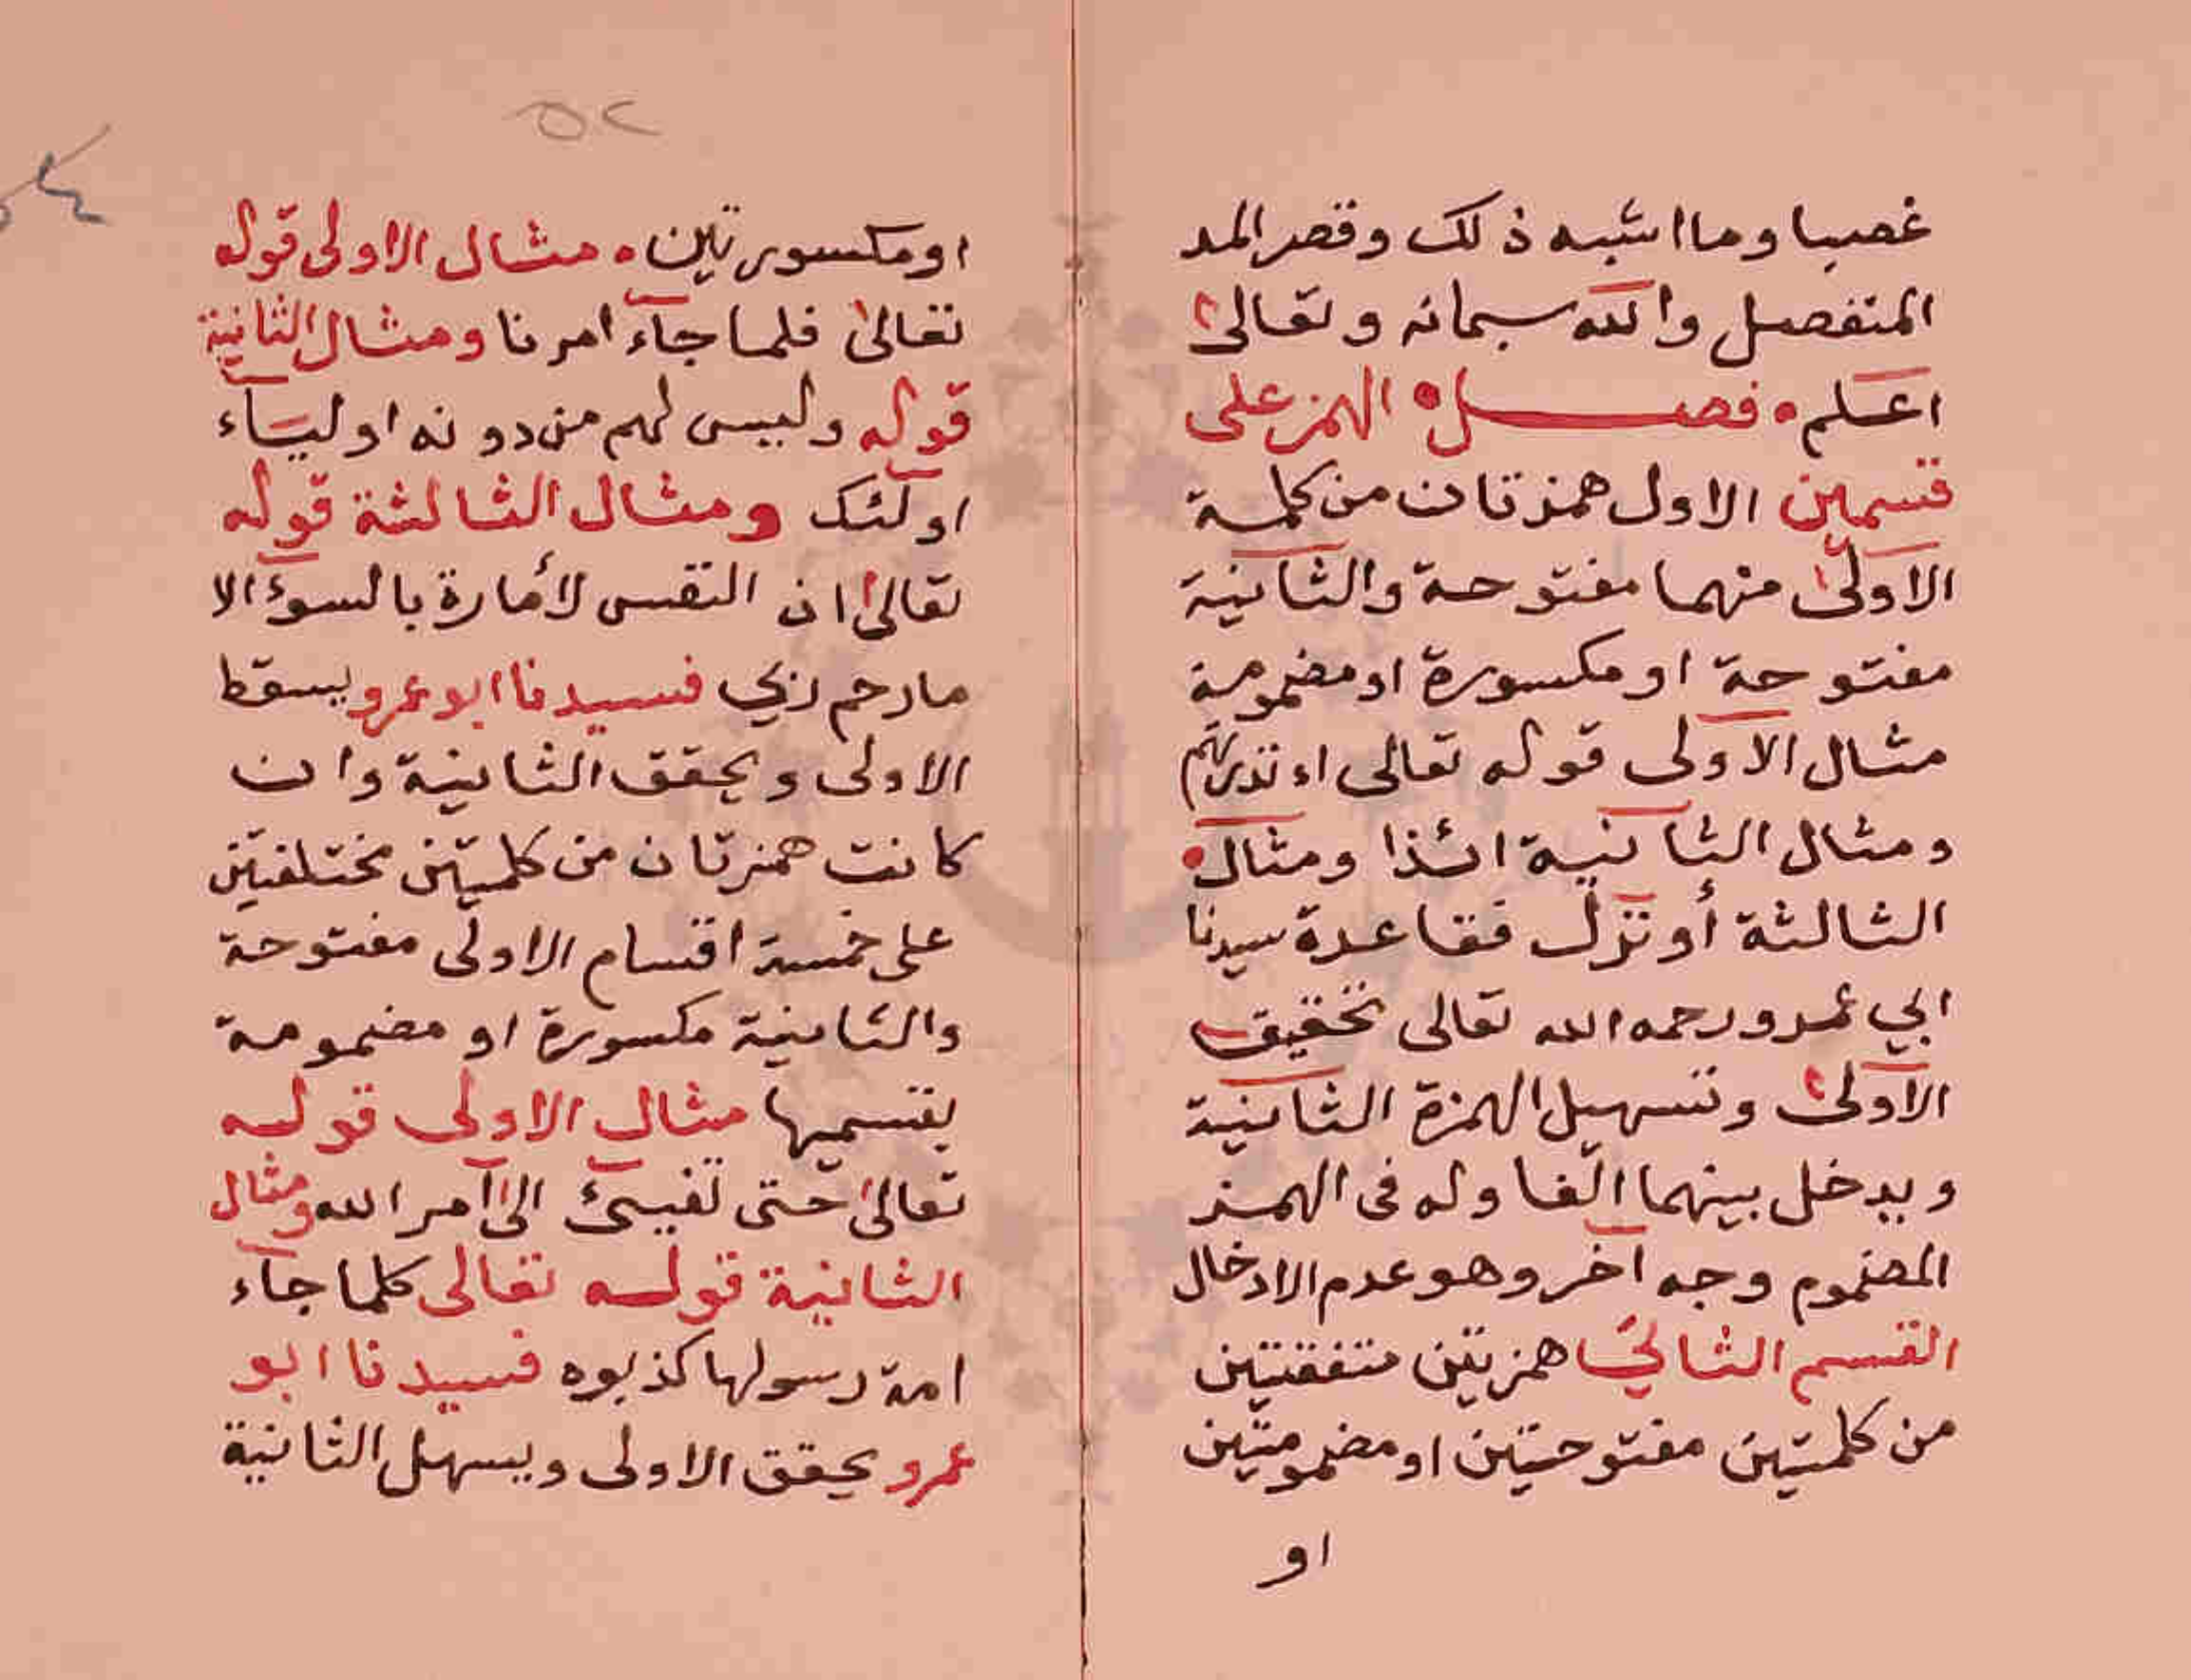 غصبا وما اشبه ذلك وقصر المد
المنفصل والله سبحانه وتعالى
اعلم ۰ فصل ۰ الهمز على
قسمين الاول همزتان من كلمة
الاولى منهما مفتوحة والثانية
مفتوحة او مكسورة او مضمومة
مثال الاولى قوله تعالى اءنذرتهم
ومثال الثانية ائذا ومثال
الثالثة أونزل فقاعدة سيدنا
ابي عمرو رحمه الله تعالى تحقيق
الاولى وتسهيل الهمزة الثانية
ويدخل بينهما الفا وله فى الهمز
المضموم وجه آخر وهو عدم الادخال
القسم الثاني همزتين متفقتين
من كلمتين مفتوحتين او مضمومتين
او
٥٢
او مكسورتين ۰ مثال الاولى قوله
تعالى فلما جآء امرنا ومثال الثانية
قوله وليس لهم من دونه اوليآء
اولئك ومثال الثالثة قوله
تعالى ان النفس لأمارة بالسوء الا
ما رحم ربي فسيدنا ابو عمرو يسقط
الاولى ويحقق الثانية وان
كانت همزتان من كلمتين مختلفتين
على خمسة اقسام الاولى مفتوحة
والثانية مكسورة او مضمومة
يقسميها مثال الاولى قوله
تعالى حتى تفيئ الى امر الله ومثال
الثانية قوله تعالى كلما جآء
امة رسولها كذبوه فسيدنا ابو
عمرو يحقق الاولى ويسهل الثانية